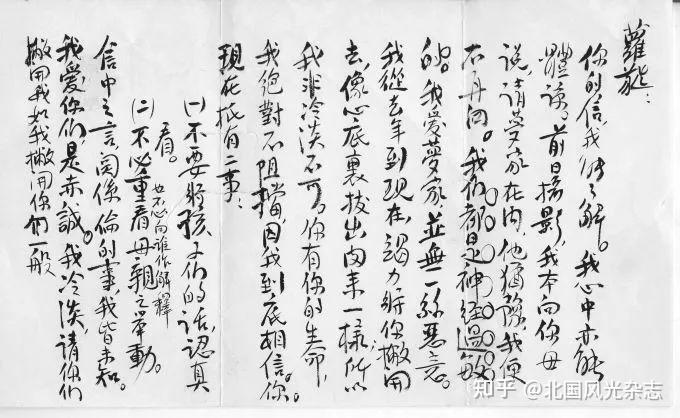 蘿蕤：
你的信，我能了解。我心中亦能
體諒。前日攝影，我本向你母
說，請夢家在內，他猶豫，我便
不再問。我們都是神經過敏
的。我愛夢家，並無一絲惡意。
我從去年到現在，竭力將你撇開
去，像心底裏拔出肉來一樣，所以
我非冷淡不可，你有你的生命，
我絕對不阻擋，因我到底相信你。
現在祇有二事：
(一)不要將孩子們的話，認真
看。也不必向誰作解釋
(二)不必重看母親之舉動。
信中之言，關係倫的事，我皆未知。
我愛你們，是赤誠。我冷淡，請你們
撇開我如我撇開你們一般
知乎 @北国风光杂志